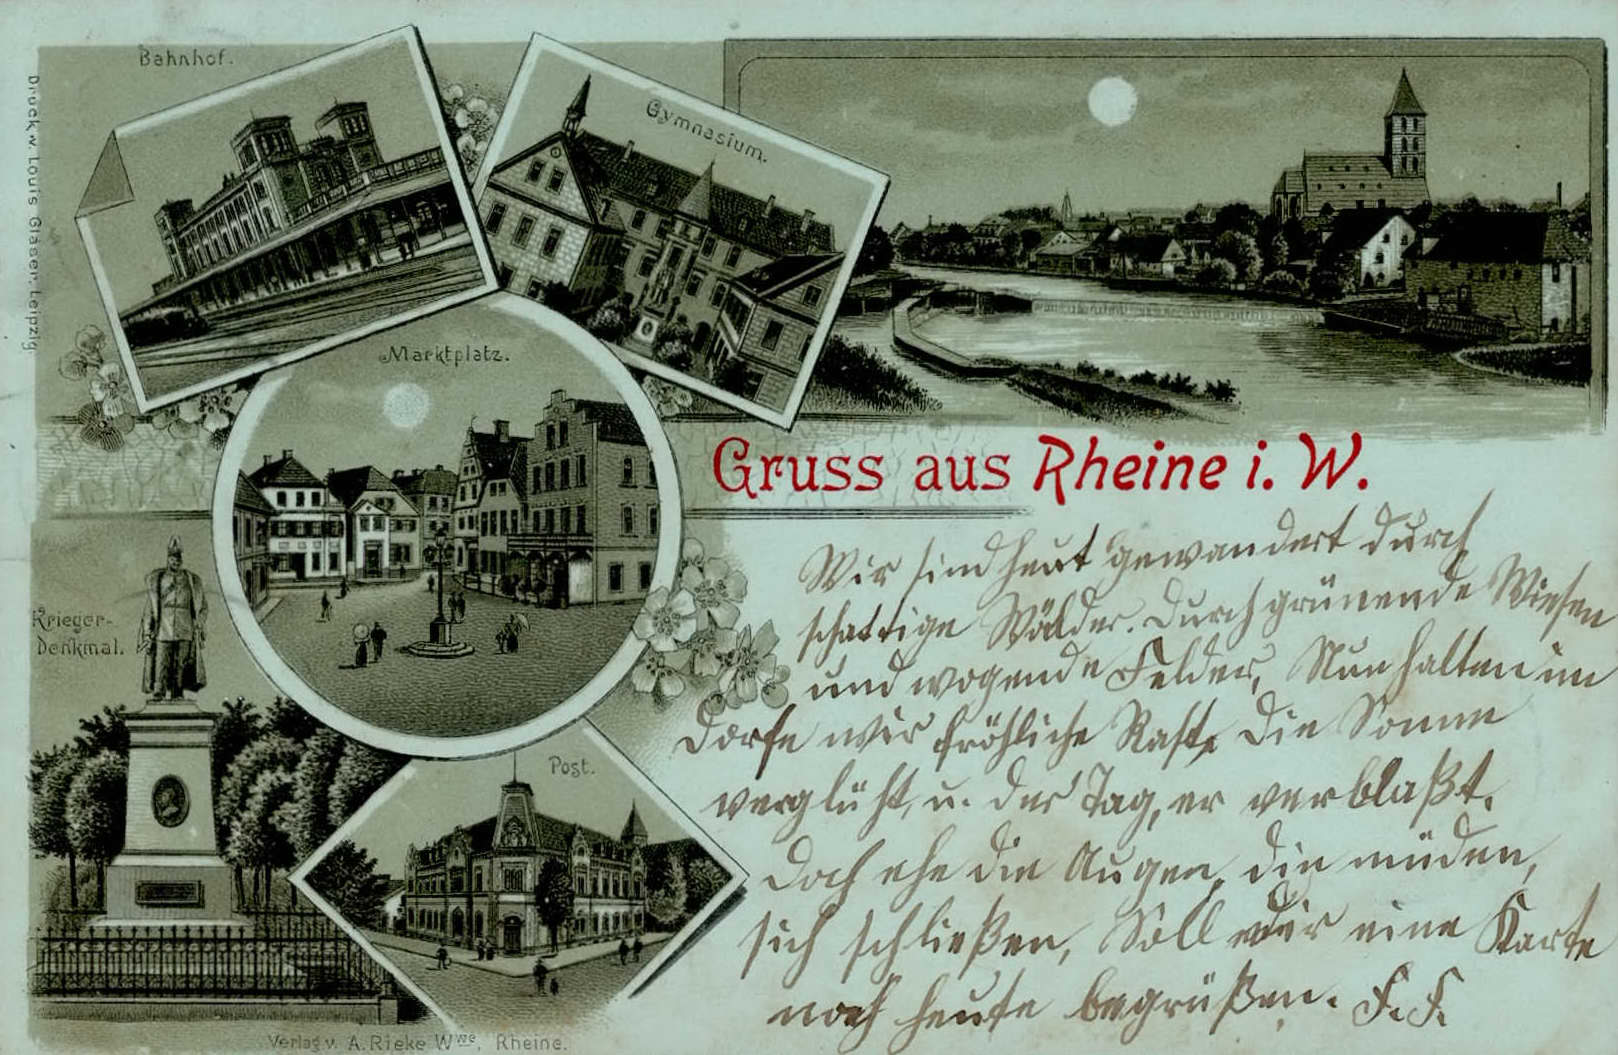 Bahnhof.
Gymnasium.
Druck v. Louis Glaser, Leipzig.
Marktplatz.
Gruss aus Rheine i. W.
Wir sind heut gewandert durch
schattige Wälder. Durch grünende Wiesen
und wogende Felder, Nun halten im
Dorfe wir fröhliche Rast, Die Sonne
verglüht, u. der Tag, er verblaßt.
Doch ehe die Augen, die müden,
sich schließen, Soll eine Karte
noch heute begrüßen. F. F.
Krieger-
Denkmal.
Post.
Verlag v. A. Rieke Wwe, Rheine.